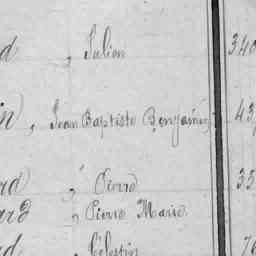 d , Julien 340
in) , Jean Baptiste Benjamin; 43
rd) , Pierre 35
ard , Pierre Marie
rd , Célestin 76